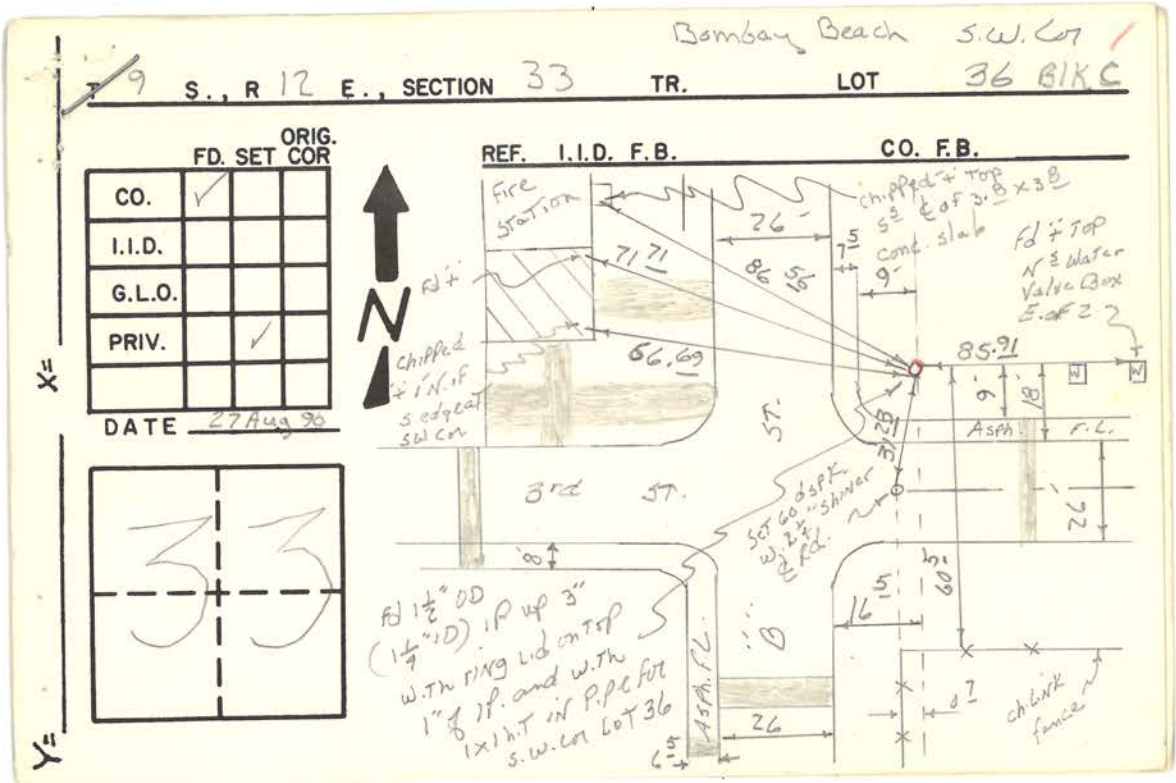 Bombay Beach S.W. Cor
T 9 S., R 12 E., SECTION 33 TR. LOT 36 BlK C
FD. SET ORIG. COR
CO. ✓
I.I.D.
G.L.O.
PRIV. ✓
DATE 27 Aug 90
33
X=
Y=
N
REF. I.I.D. F.B. CO. F.B.
Fire
Station
Fd +
chipped
+ 1' N. of
s edge at
sw cor
71 71
86 56
66.69
26
7 5
9
chipped + Top
5 5 ¢ of 3.8 x 3 8
conc. slab
Fd + Top
N Water
Valve Box
E. of 2
85.91
W
W
9'
18'
Asph. F.L.
22'
31.23
ST.
3rd ST.
8'
Set 60 d spk.
w. 2 1/4" shiner
¢ Rd.
"B"
16 5
60
Fd 1 1/2" OD
(1 1/4" ID) IP up 3"
w.Th ring Lid on Top
1" of IP. and w.Th
1x1 h.T in Pipe for
S.W. Cor LOT 36
Asph. F.L.
6 5
26
0 7
ch. Link
fence